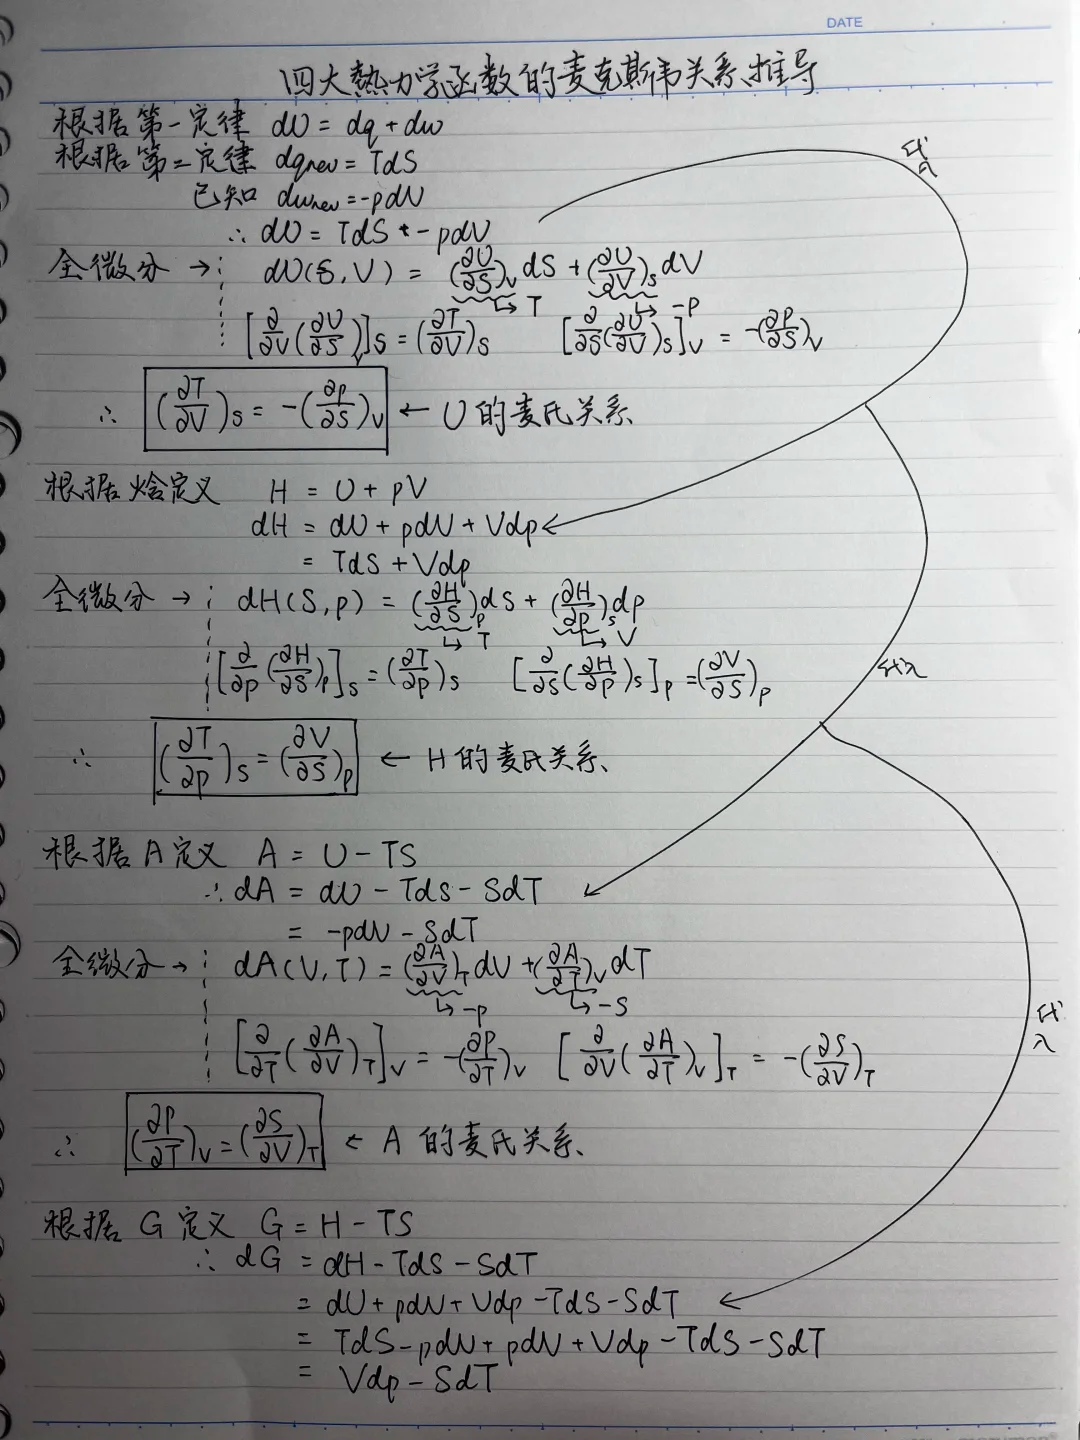 DATE
四大热力学函数的麦克斯伟关系推导
根据第一定律 dU = dq + dw
根据第二定律 dqrev = TdS
已知 dwrev = -pdV
∴ dU = TdS + -pdV
全微分 → dU(S,V) = (∂U/∂S)V dS + (∂U/∂V)S dV
↳ T ↳ -P
[∂/∂V(∂U/∂S)V]S = (∂T/∂V)S [∂/∂S(∂U/∂V)S]V = -(∂P/∂S)V
∴ (∂T/∂V)S = -(∂p/∂S)V ← U的麦氏关系
根据焓定义 H = U + pV
dH = dU + pdV + Vdp
= TdS + Vdp
代入
全微分 → dH(S,p) = (∂H/∂S)p dS + (∂H/∂p)s dp
↳ T ↳ V
[∂/∂p(∂H/∂S)p]S = (∂T/∂p)S [∂/∂S(∂H/∂p)s]p = (∂V/∂S)p
代入
∴ (∂T/∂p)S = (∂V/∂S)p ← H的麦氏关系
根据A定义 A = U - TS
∴ dA = dU - TdS - SdT
= -pdV - SdT
全微分 → dA(V,T) = (∂A/∂V)T dV + (∂A/∂T)V dT
↳ -p ↳ -S
[∂/∂T(∂A/∂V)T]V = -(∂P/∂T)V [∂/∂V(∂A/∂T)V]T = -(∂S/∂V)T
代入
∴ (∂P/∂T)V = (∂S/∂V)T ← A的麦氏关系
根据G定义 G = H - TS
∴ dG = dH - TdS - SdT
= dU + pdV + Vdp - TdS - SdT
= TdS - pdV + pdV + Vdp - TdS - SdT
= Vdp - SdT